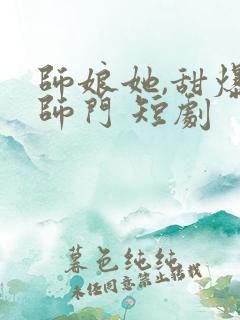 師娘她,甜爆
師門 短劇
暮色纯纯
未经同意禁止转载